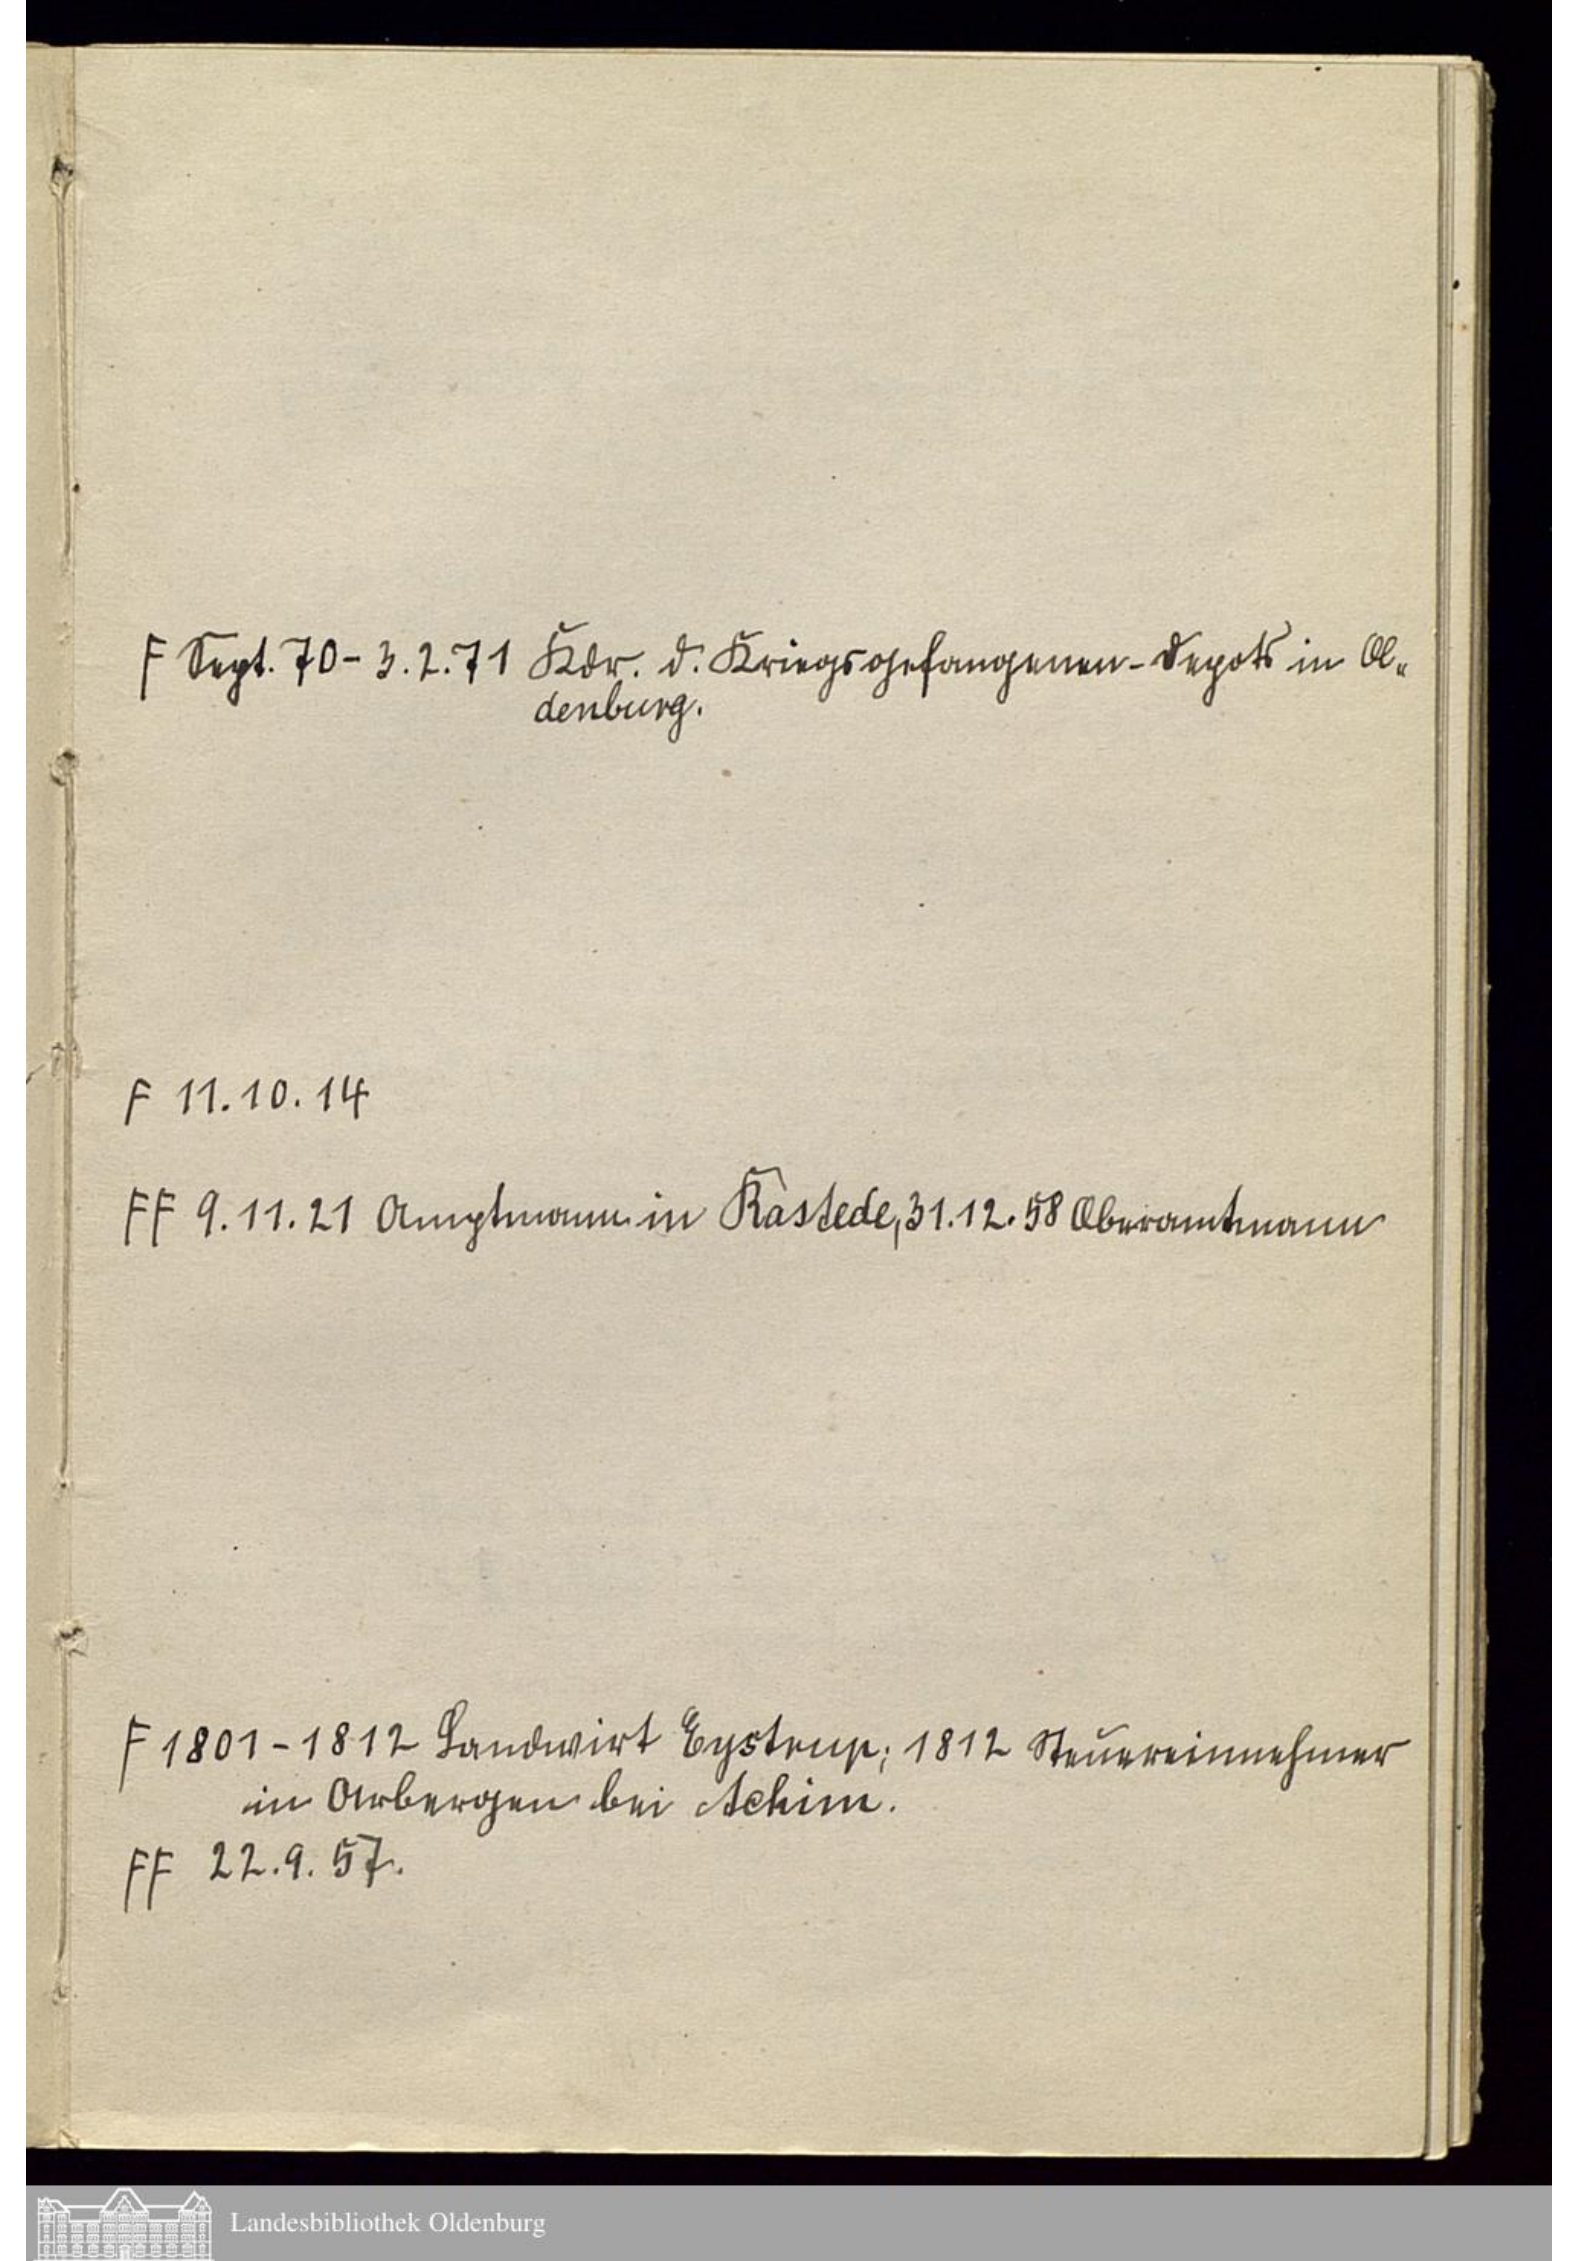 F Sept. 70 - 3.2.71 Kdr. d. Kriegsgefangenen-Depots in Ol-
denburg.
F 11.10.14
FF 9.11.21 Amptmann in Rastede, 31.12.58 Oberamtmann
F 1801 - 1812 Landwirt Eystrup; 1812 Steuereinnehmer
in Arbergen bei Achim.
FF 22.9.57.
Landesbibliothek Oldenburg